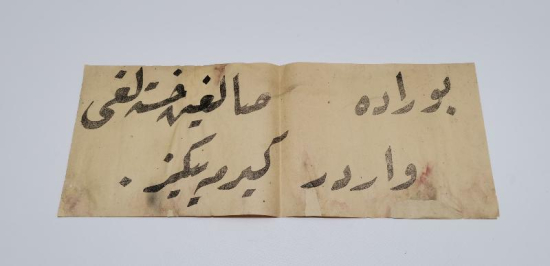 بوراده صالغين خسته لغی
واردر كيرمه ييكز .